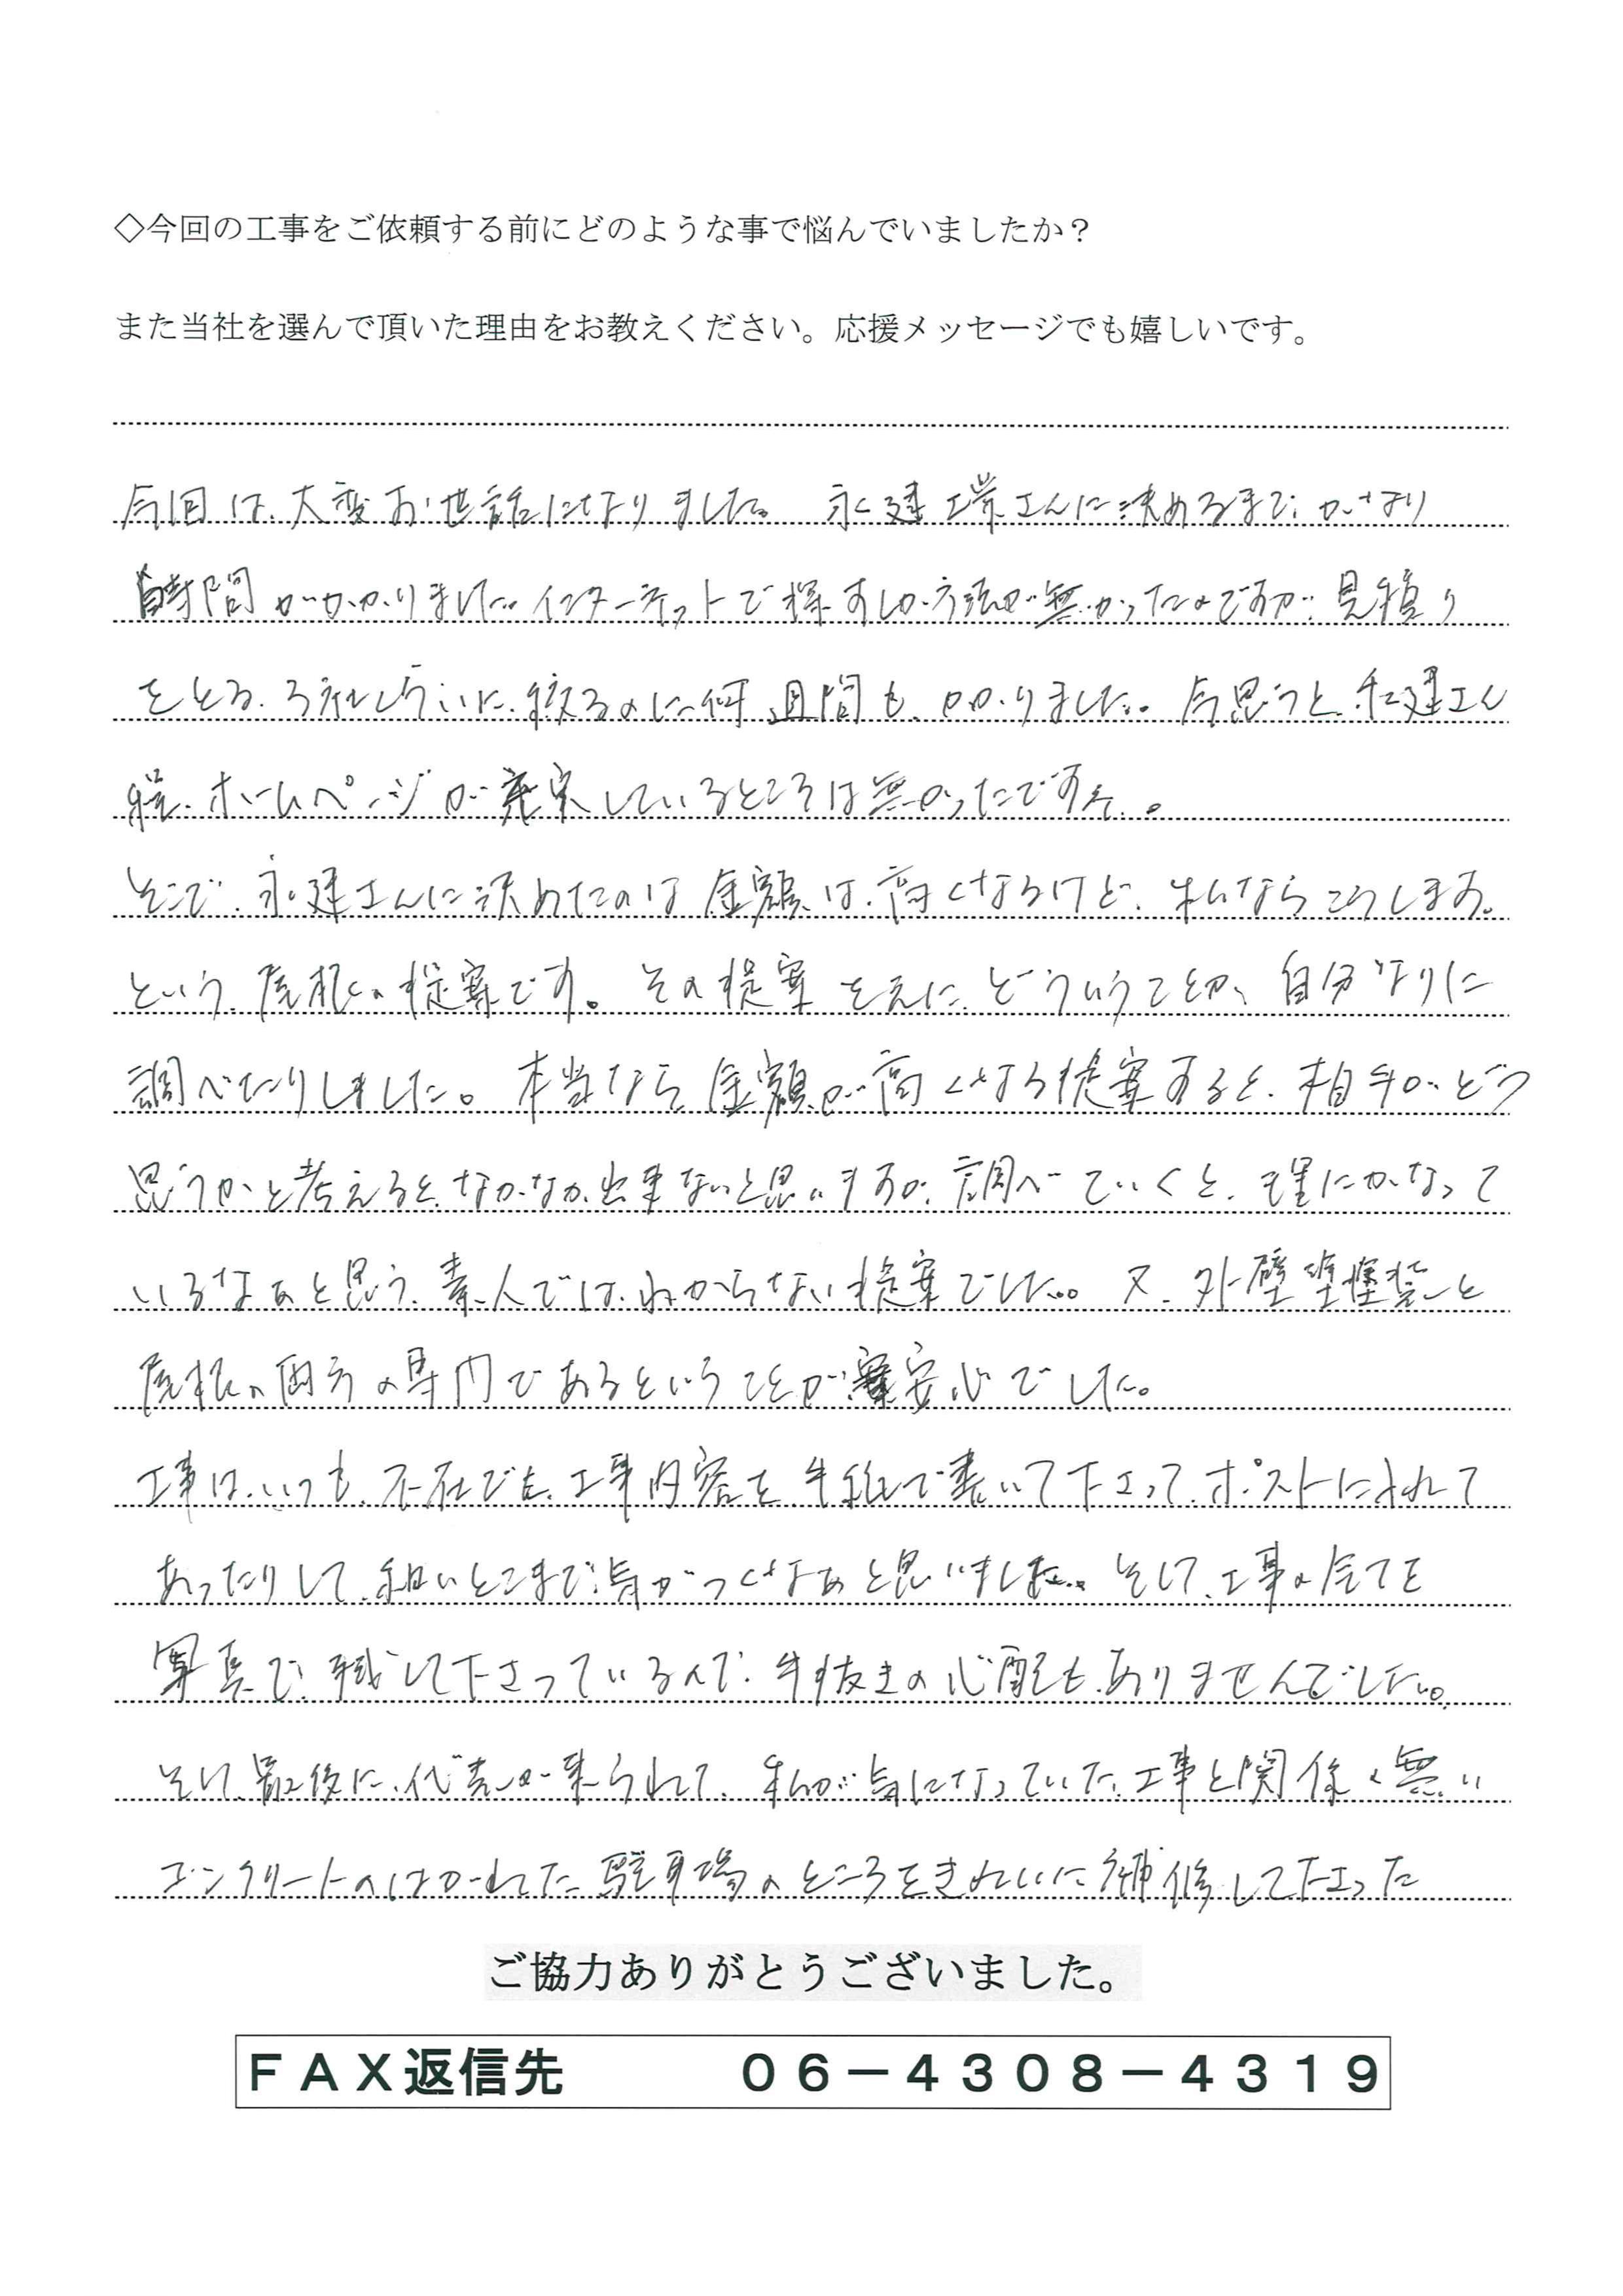 ◇今回の工事をご依頼する前にどのような事で悩んでいましたか？
また当社を選んで頂いた理由をお教えください。応援メッセージでも嬉しいです。
今回は、大変お世話になりました。 永建工業さんに決めるまで、かなり
時間がかかりました。インターネットで探すしか方法が無かったのですが、見積り
をとる、3社くらいに、絞るのに何週間も、かかりました。今思うと、永建さん
程、ホームページが充実しているところは無かったですね。
そこで、永建さんに決めたのは金額は、高くなるけど、私ならこうします。
という、屋根の提案です。 その提案を元に、どういうことか、自分なりに
調べたりしました。 本当なら、金額が高くなる提案すると、相手がどう
思うかと考えると、なかなか出来ないと思いますが、調べていくと、理にかなって
いるなぁと思う、素人では、わからない提案でした。 又、外壁塗装と
屋根の両方の専門であるということが安心でした。
工事は、いつも、不在でも、工事内容を、手紙で書いて下さって、ポストに入れて
あったりして、細いとこまで、気がつくなぁと思いました。そして、工事の全てを
写真で、残して下さっているんで、手抜きの心配も、ありませんでした。
そして、最後に、代表が来られて、私が気になっていた、工事と関係の無い
コンクリートのはがれてた駐車場のところをきれいに補修して下さった
ご協力ありがとうございました。
ＦＡＸ返信先 ０６－４３０８－４３１９